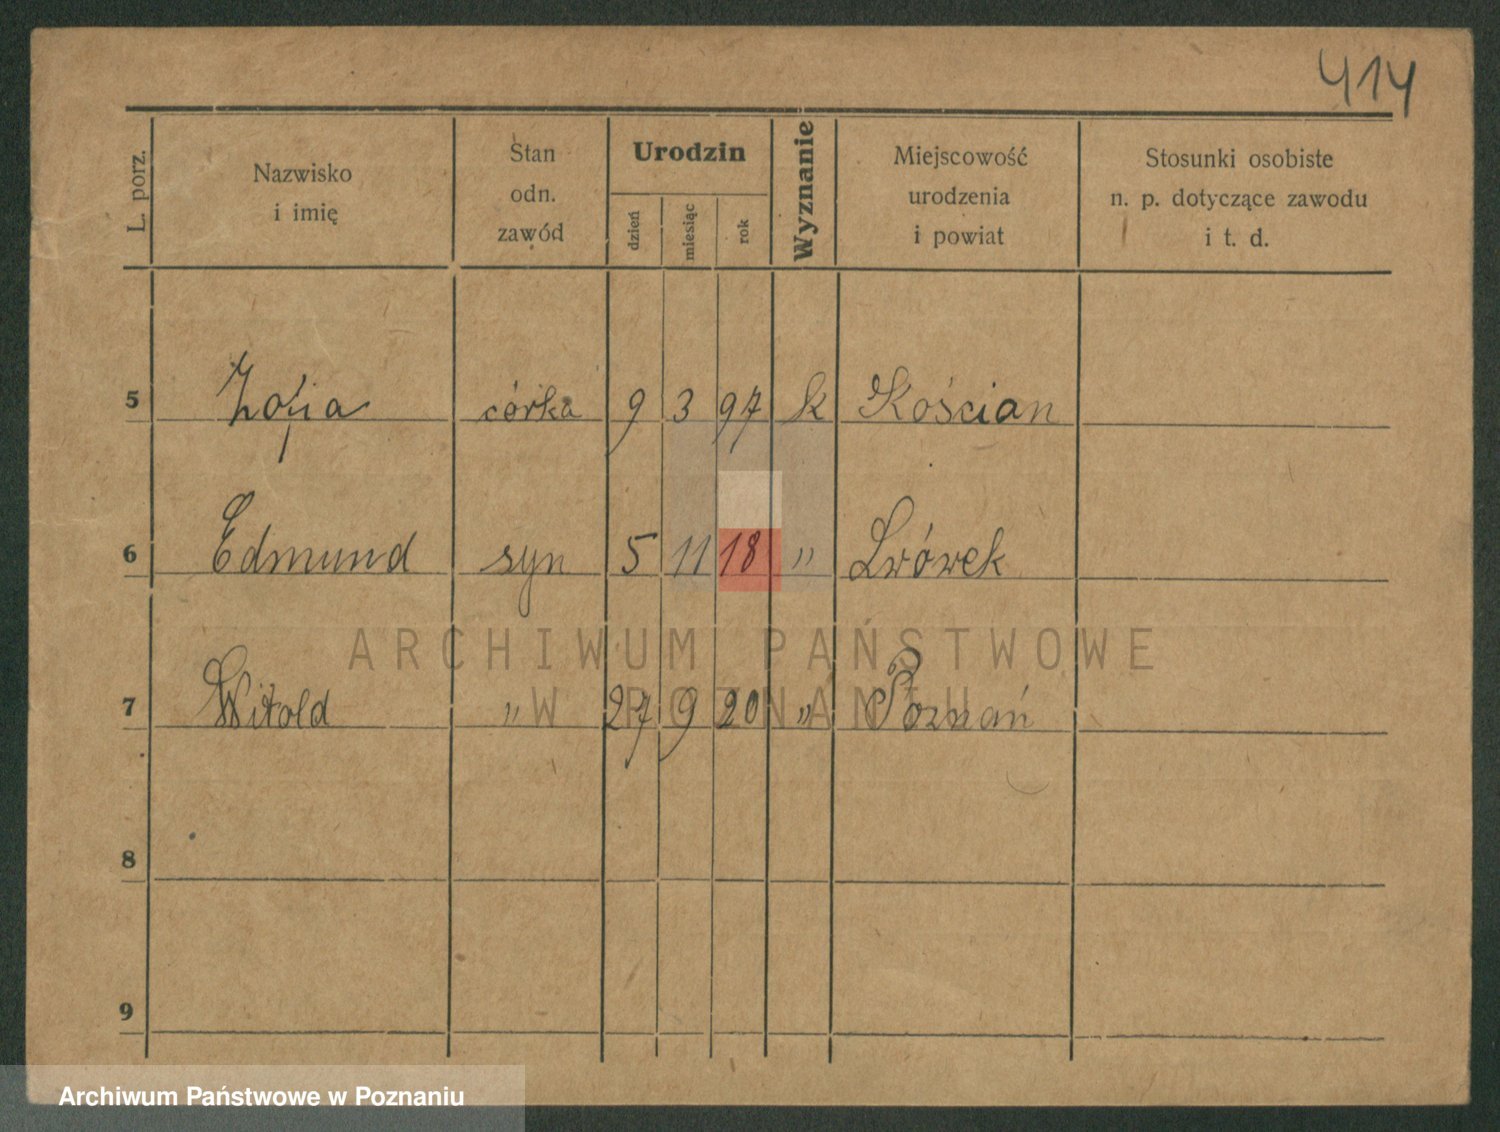 414
L. porz.
Nazwisko
i imię
Stan
odn.
zawód
Urodzin
dzień
miesiąc
rok
Wyznanie
Miejscowość
urodzenia
i powiat
Stosunki osobiste
n. p. dotyczące zawodu
i t. d.
5 Zofia córka 9 3 97 k Kościan
6 Edmund syn 5 11 18 " Lwówek
7 Witold " 27 9 20 " Poznań
8
9
ARCHIWUM PAŃSTWOWE
W POZNANIU
Archiwum Państwowe w Poznaniu